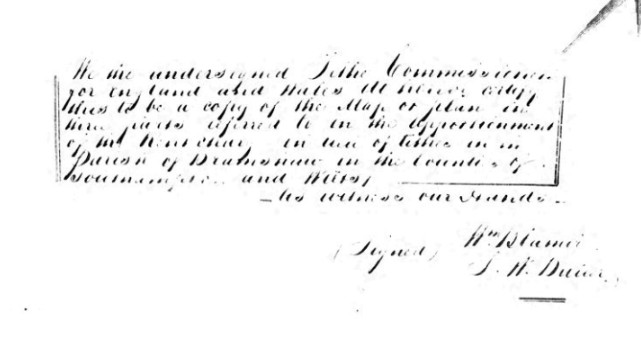 We the undersigned Tithe Commissioners
for England and Wales do hereby certify
this to be a copy of the Map or plan in
three parts referred to in the apportionment
of the Rent charge in lieu of tithes in
Parish of Bramshaw in the Counties of
Southampton and Wilts
As witness our hands
(Signed) Wm Blamire
T. W. Buller